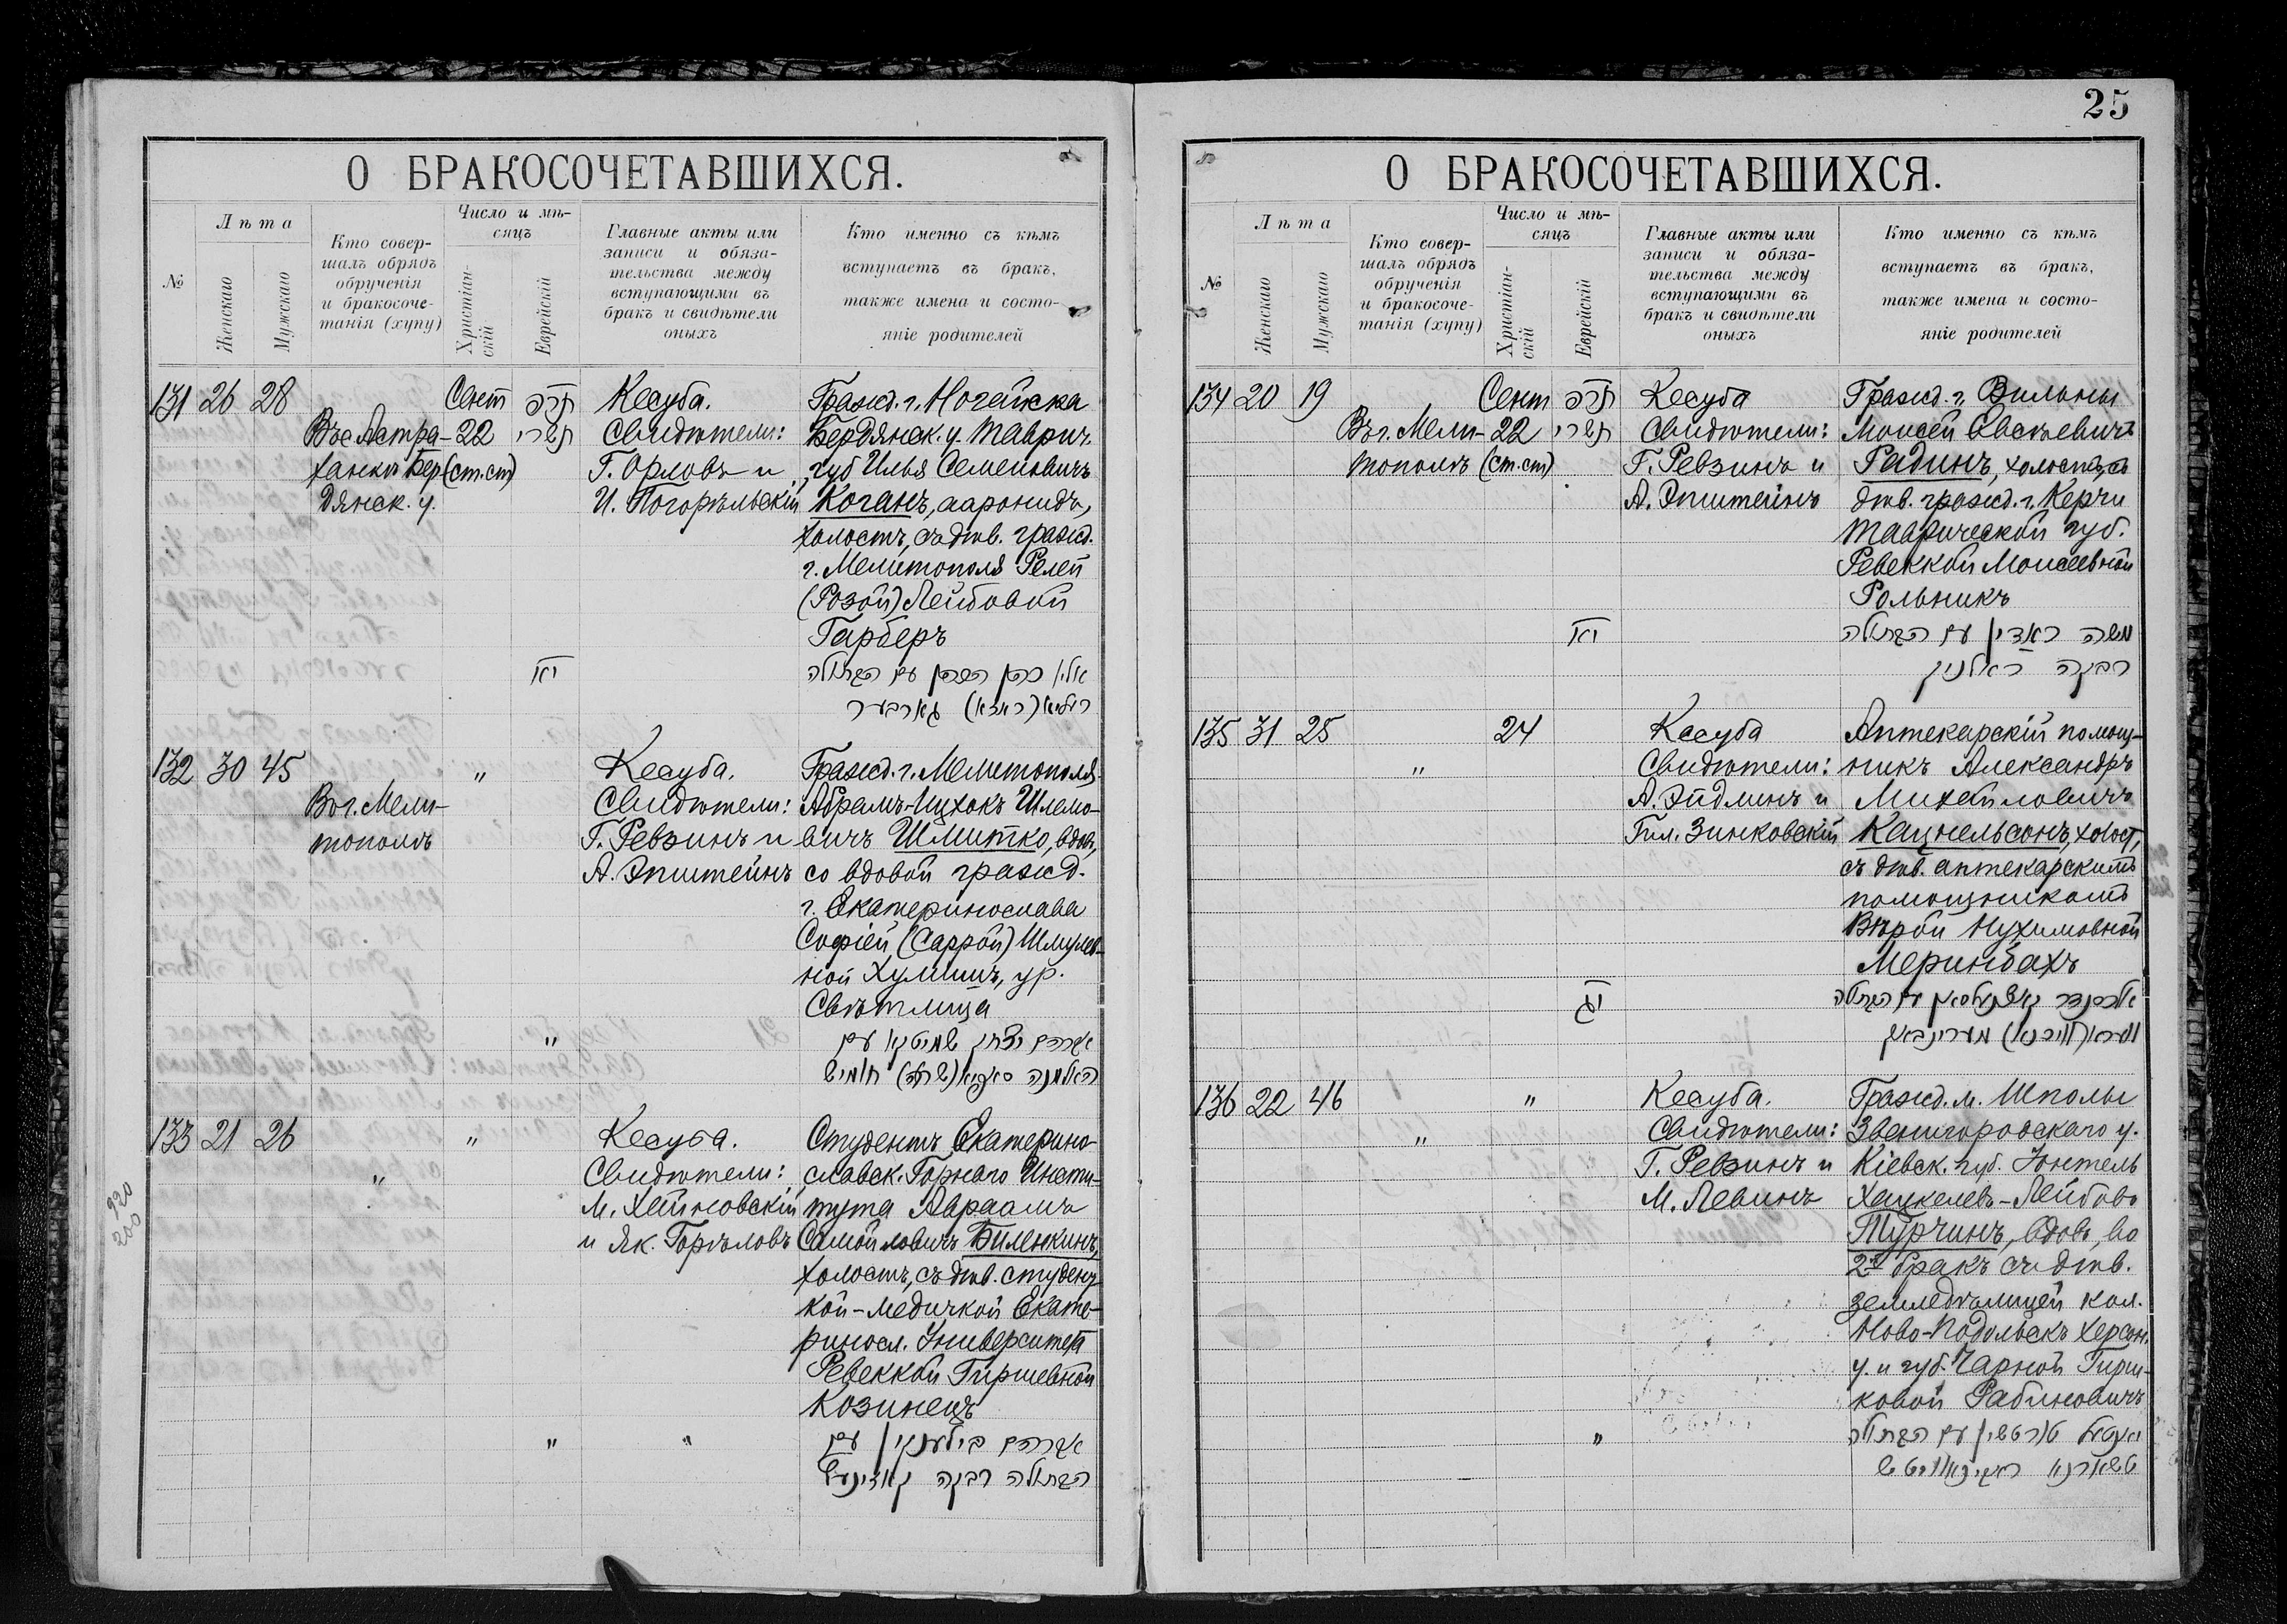 О БРАКОСОЧЕТАВШИХСЯ.
№
Лѣта
Женскаго
Мужскаго
Кто совер-
шалъ обрядъ
обрученія
и бракосоче-
танія (хупу)
Число и мѣ-
сяцъ
Христіан-
скій
Еврейскій
Главные акты или
записи и обяза-
тельства между
вступающими въ
бракъ и свидѣтели
оныхъ
Кто именно съ кѣмъ
вступаетъ въ бракъ,
также имена и состо-
яніе родителей
131 26 28
Въ с. Астра-
ханки Бер
дянск. у.
Сент
22
(ст.ст)
תרפ
תשרי
יא
Кесуба.
Свидѣтели:
Г. Орловъ и
И. Погорѣльскій
Гражд. г. Ногайска
Бердянск. у. Таврич.
губ Илья Семеновичъ
Коганъ, ааронидъ,
холостъ, съ дѣв. гражд.
г. Мелитополя Релей
(Розой) Лейбовой
Гарберъ
אליי כהן הכהן עם הבתולה
רילא (ראזא) גארבער
132 30 45
Въ г. Мели-
тополѣ
"
"
Кесуба.
Свидѣтели:
Г. Ревзинъ и
А. Эпштейнъ
Гражд. г. Мелитополя
Абрамъ-Ицхокъ Шлемо-
вичъ Шмитко, вдов,
со вдовой гражд.
г. Екатеринослава
Софіей (Саррой) Шмулев-
ной Хумишъ, ур.
Свѣтлица
אברהם יצחק שמיטקא עם
האלמנה סאפיא (שרה) חומיש
133 21 26
"
"
"
"
Кесуба.
Свидѣтели:
М. Хейновскій
и Як. Горѣловъ
Студентъ Екатерино-
славск. Горнаго Инсти-
тута Авраамъ
Самойловичъ Биленкинъ,
холостъ, съ дѣв. студент
кой-медичкой Екате-
риносл. Университета
Ревеккой Гиршевной
Козинецъ
אברהם בילענקין עם
הבתולה רבקה קאזינעץ
920
200
25
О БРАКОСОЧЕТАВШИХСЯ.
№
Лѣта
Женскаго
Мужскаго
Кто совер-
шалъ обрядъ
обрученія
и бракосоче-
танія (хупу)
Число и мѣ-
сяцъ
Христіан-
скій
Еврейскій
Главные акты или
записи и обяза-
тельства между
вступающими въ
бракъ и свидѣтели
оныхъ
Кто именно съ кѣмъ
вступаетъ въ бракъ,
также имена и состо-
яніе родителей
134 20 19
Въ г. Мели-
тополѣ
Сент
22
(ст.ст)
תרפ
תשרי
יא
Кесуба
Свидѣтели:
Г. Ревзинъ и
А. Эпштейнъ
Гражд. г. Вильны
Моисей Овсѣевичъ
Радинъ, холостъ, съ
дѣв. гражд. г. Керчи
Таврической губ.
Ревеккой Моисеевной
Рольникъ
משה ראדין עם הבתולה
רבקה ראלניק
135 31 25
"
24
יג
Кесуба
Свидѣтели:
А. Эйдлинъ и
Гил. Зинковскій
Аптекарскій помощ-
никъ Александръ
Михайловичъ
Кацнельсонъ, холост,
съ дѣв. аптекарскимъ
помощникомъ
Вѣрой Нухимовной
Меринбахъ
אלכסנדר קאצנעלסאן עם הבתולה
מערינבאך
136 22 46
"
"
"
Кесуба.
Свидѣтели:
Г. Ревзинъ и
М. Левинъ
Гражд. м. Шполы
Звенигородскаго у.
Кіевск. губ. Юнтель
Хацкелевъ-Лейбовъ
Турчинъ, вдов, во
2й бракъ съ дѣв.
земледѣлицей кол.
Ново-Подольскъ Херсон.
у. и губ. Чарной Гирш-
ковой Рабиновичъ
יאנטעל טורטשין עם הבתולה
טשארנא ראבינאוויטש